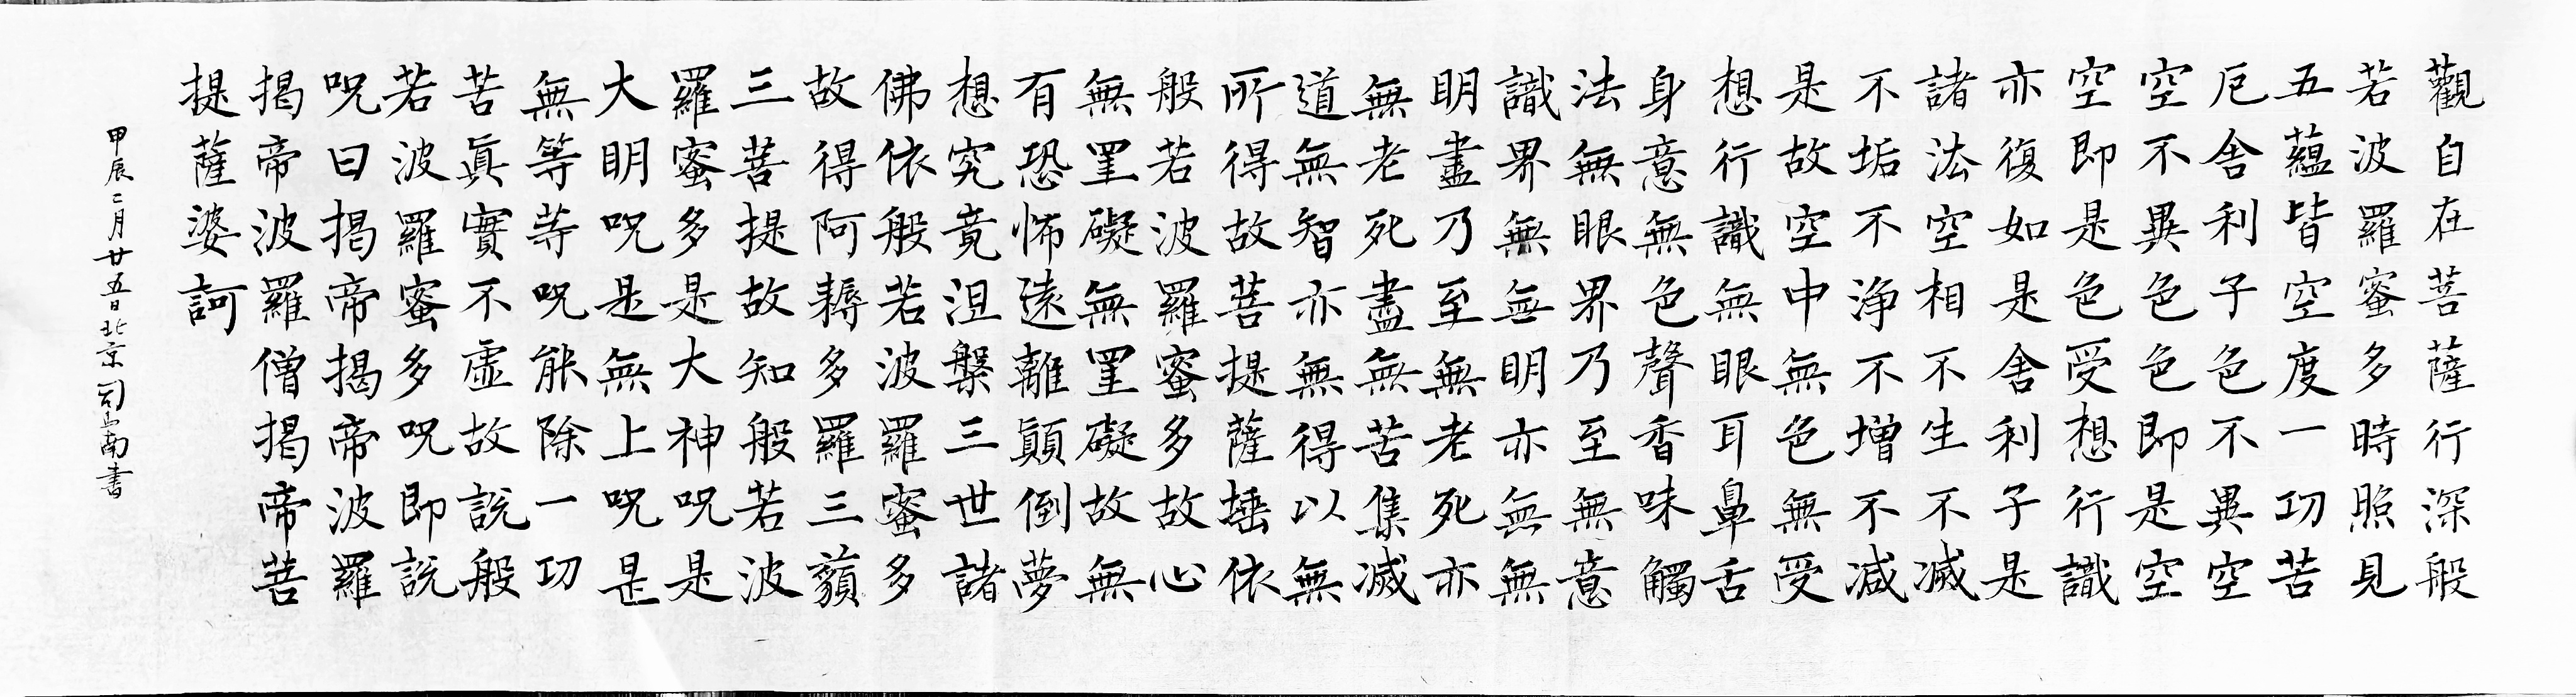 觀自在菩薩行深般
若波羅蜜多時照見
五蘊皆空度一切苦
厄舍利子色不異空
空不異色色即是空
空即是色受想行識
亦復如是舍利子是
諸法空相不生不滅
不垢不淨不增不減
是故空中無色無受
想行識無眼耳鼻舌
身意無色聲香味觸
法無眼界乃至無意
識界無無明亦無無
明盡乃至無老死亦
無老死盡無苦集滅
道無智亦無得以無
所得故菩提薩埵依
般若波羅蜜多故心
無罣礙無罣礙故無
有恐怖遠離顛倒夢
想究竟涅槃三世諸
佛依般若波羅蜜多
故得阿耨多羅三藐
三菩提故知般若波
羅蜜多是大神呪是
大明呪是無上呪是
無等等呪能除一切
苦眞實不虛故說般
若波羅蜜多呪即說
呪曰揭帝揭帝波羅
揭帝波羅僧揭帝菩
提薩婆訶
甲辰二月廿五日北京司马南書